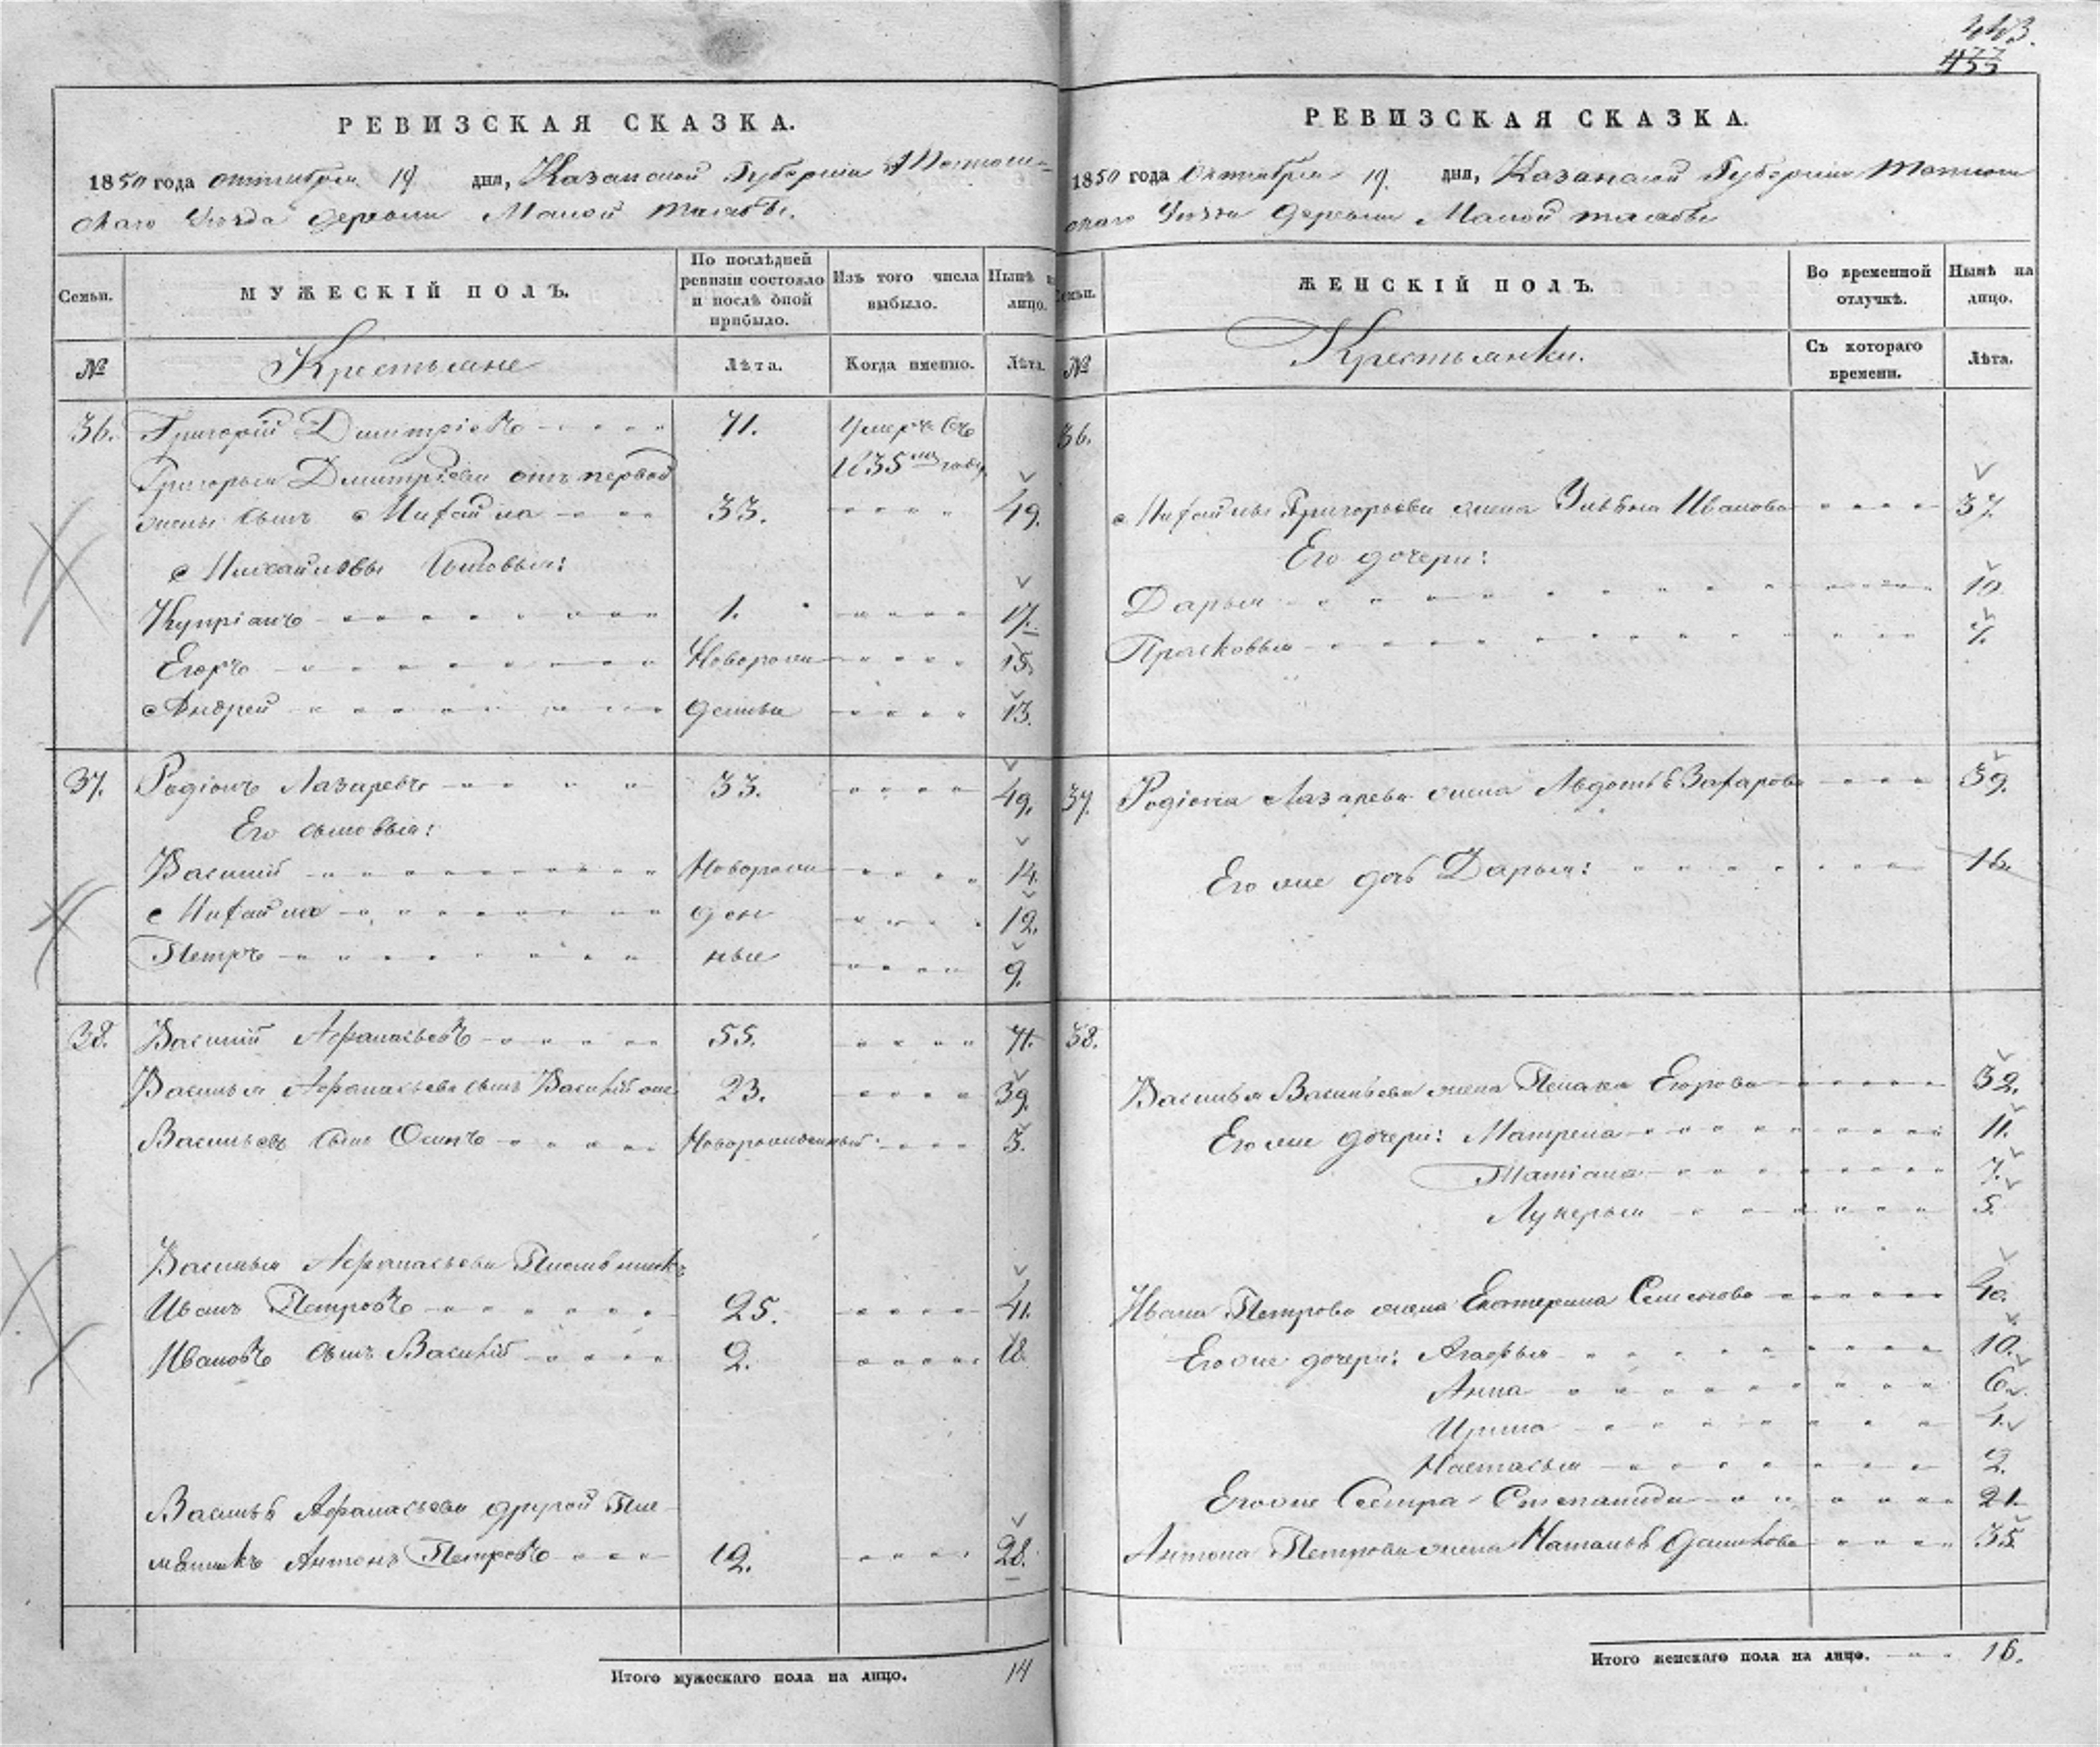 443.
455
РЕВИЗСКАЯ СКАЗКА.
1850 года октября 19 дня, Казанской Губернии
скаго Уезда деревни Малой
Семьи.
МУЖЕСКІЙ ПОЛЪ.
По послѣдней ревизіи состояло и послѣ оной прибыло.
Изъ того числа выбыло.
Нынѣ на лицо.
№
Крестьяне
Лѣта.
Когда именно.
Лѣта.
36. Григорій Димитріевъ 71. Умеръ въ
1835 году
Григорья Димитріева отъ первой
жены сынъ Михайла 33. 49.
Михайловы сыновья:
Купріанъ 1. 17.
Егоръ Новорож 15.
Андрей денные 13.
37. Родіонъ Лазаревъ 33. 49.
Его сыновья:
Василій Новорож 14.
Михайла ден 12.
Петръ ные 9.
38. Василій Афанасьевъ 55. 71.
Василья Афанасьева сынъ Василій же 23. 39.
Васильевъ сынъ Осипъ Новорожденный 5.
Василья Афанасьева Племянникъ
Иванъ Петровъ 25. 41.
Ивановъ сынъ Василій 2. 18.
Василья Афанасьева другой Пле
мянникъ Антонъ Петровъ 12. 28.
Итого мужескаго пола на лицо. 14
РЕВИЗСКАЯ СКАЗКА.
1850 года Октября 19. дня, Казанской Губерніи
скаго Уезда деревни Малой
Семьи.
ЖЕНСКІЙ ПОЛЪ.
Во временной отлучкѣ.
Нынѣ на лицо.
№
Крестьянки.
Съ котораго времени.
Лѣта.
36.
Михайлы Григорьева жена Ульяна Иванова 37.
Его дочери:
Дарья 10.
Прасковья 7.
37. Родіона Лазарева жена Авдотья Захарова 39.
Его же дочь Дарья: 16.
38.
Василья Васильева жена Егорова 32.
Его же дочери: Матрена 11.
Татіана 7.
Лукерья 5.
Ивана Петрова жена Екатерина Семенова 40.
Его же дочери: Агафья 10.
Анна 6.
Ирина 4.
Настасья 2.
Его же Сестра Степанида 21.
Антона Петрова жена Наталья 35.
Итого женскаго пола на лицо. 16.